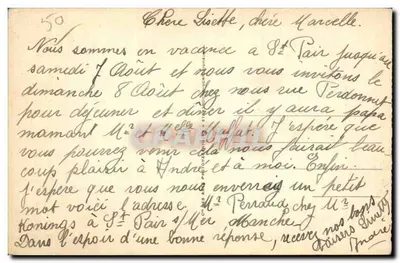 50
Chère Lisette, chère Marcelle.
Nous sommes en vacance a St Pair jusqu'au
samedi 7 Août et nous vous invitons le
dimanche 8 Août chez nous rue Perdonnet
pour déjeuner et dîner il y aura papa
maman Mr et J'espère que
vous pourrez venir cela nous ferait beau
coup plaisir à André et à moi. Enfin
j'espère que vous nous enverrez un petit
mot voici l'adresse Mr Perraud chez Mr
Konings à St Pair s/Mer Manche
Dans l'espoir d'une bonne réponse, recevez nos bons
baisers